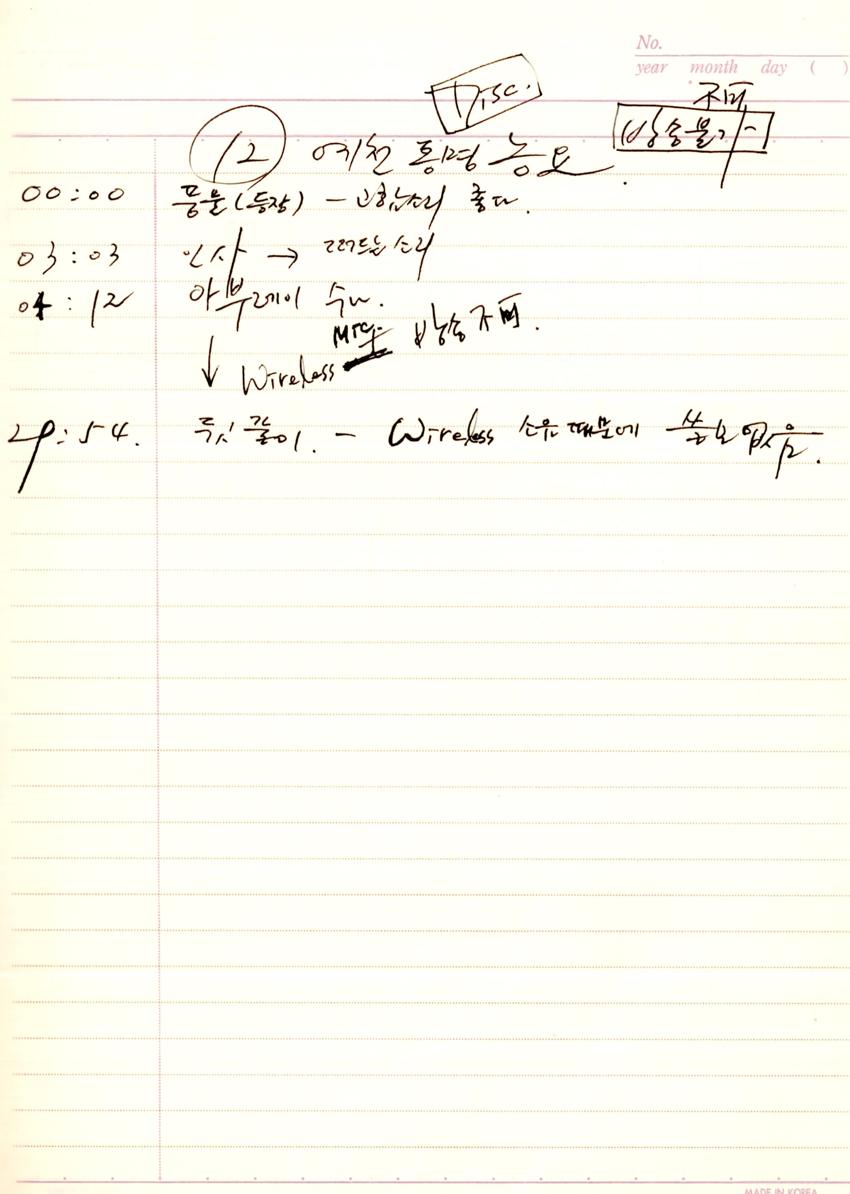 No.
year month day ( )
Disc.
창피
방송불가
12 예천 통명 농요
00:00 풍물(등장) - 고함소리 좋다.
03:03 인사 → 떠드는 소리
04:12 아부레이 수나.
↓ Wireless 방송
29:54. 논 - Wireless 소음 때문에 쓸모 없음.
MADE IN KOREA